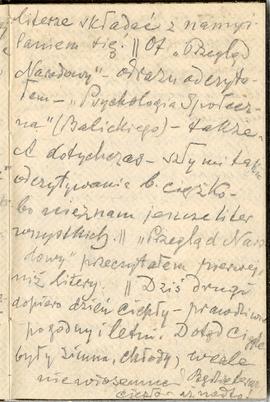 literze składać z namy-
słaniem się. || Ot „Przegląd
Narodowy" – odrazu odczyta-
łem – „Psychologia Społecz-
na" (Balickiego) – także.
A dotychczas – szły mi
odczytywania b. ciężko
bo nieznam jeszcze liter
wszystkich. || „Przegląd Naro-
dowy" przeczytałem pierwej
niż litery. || Dziś drugi
dopiero dzień ciepły – prawdziwie
pogodny i letni. Dotąd ciągle
były zimna, chłody, wcale
niewiosenne